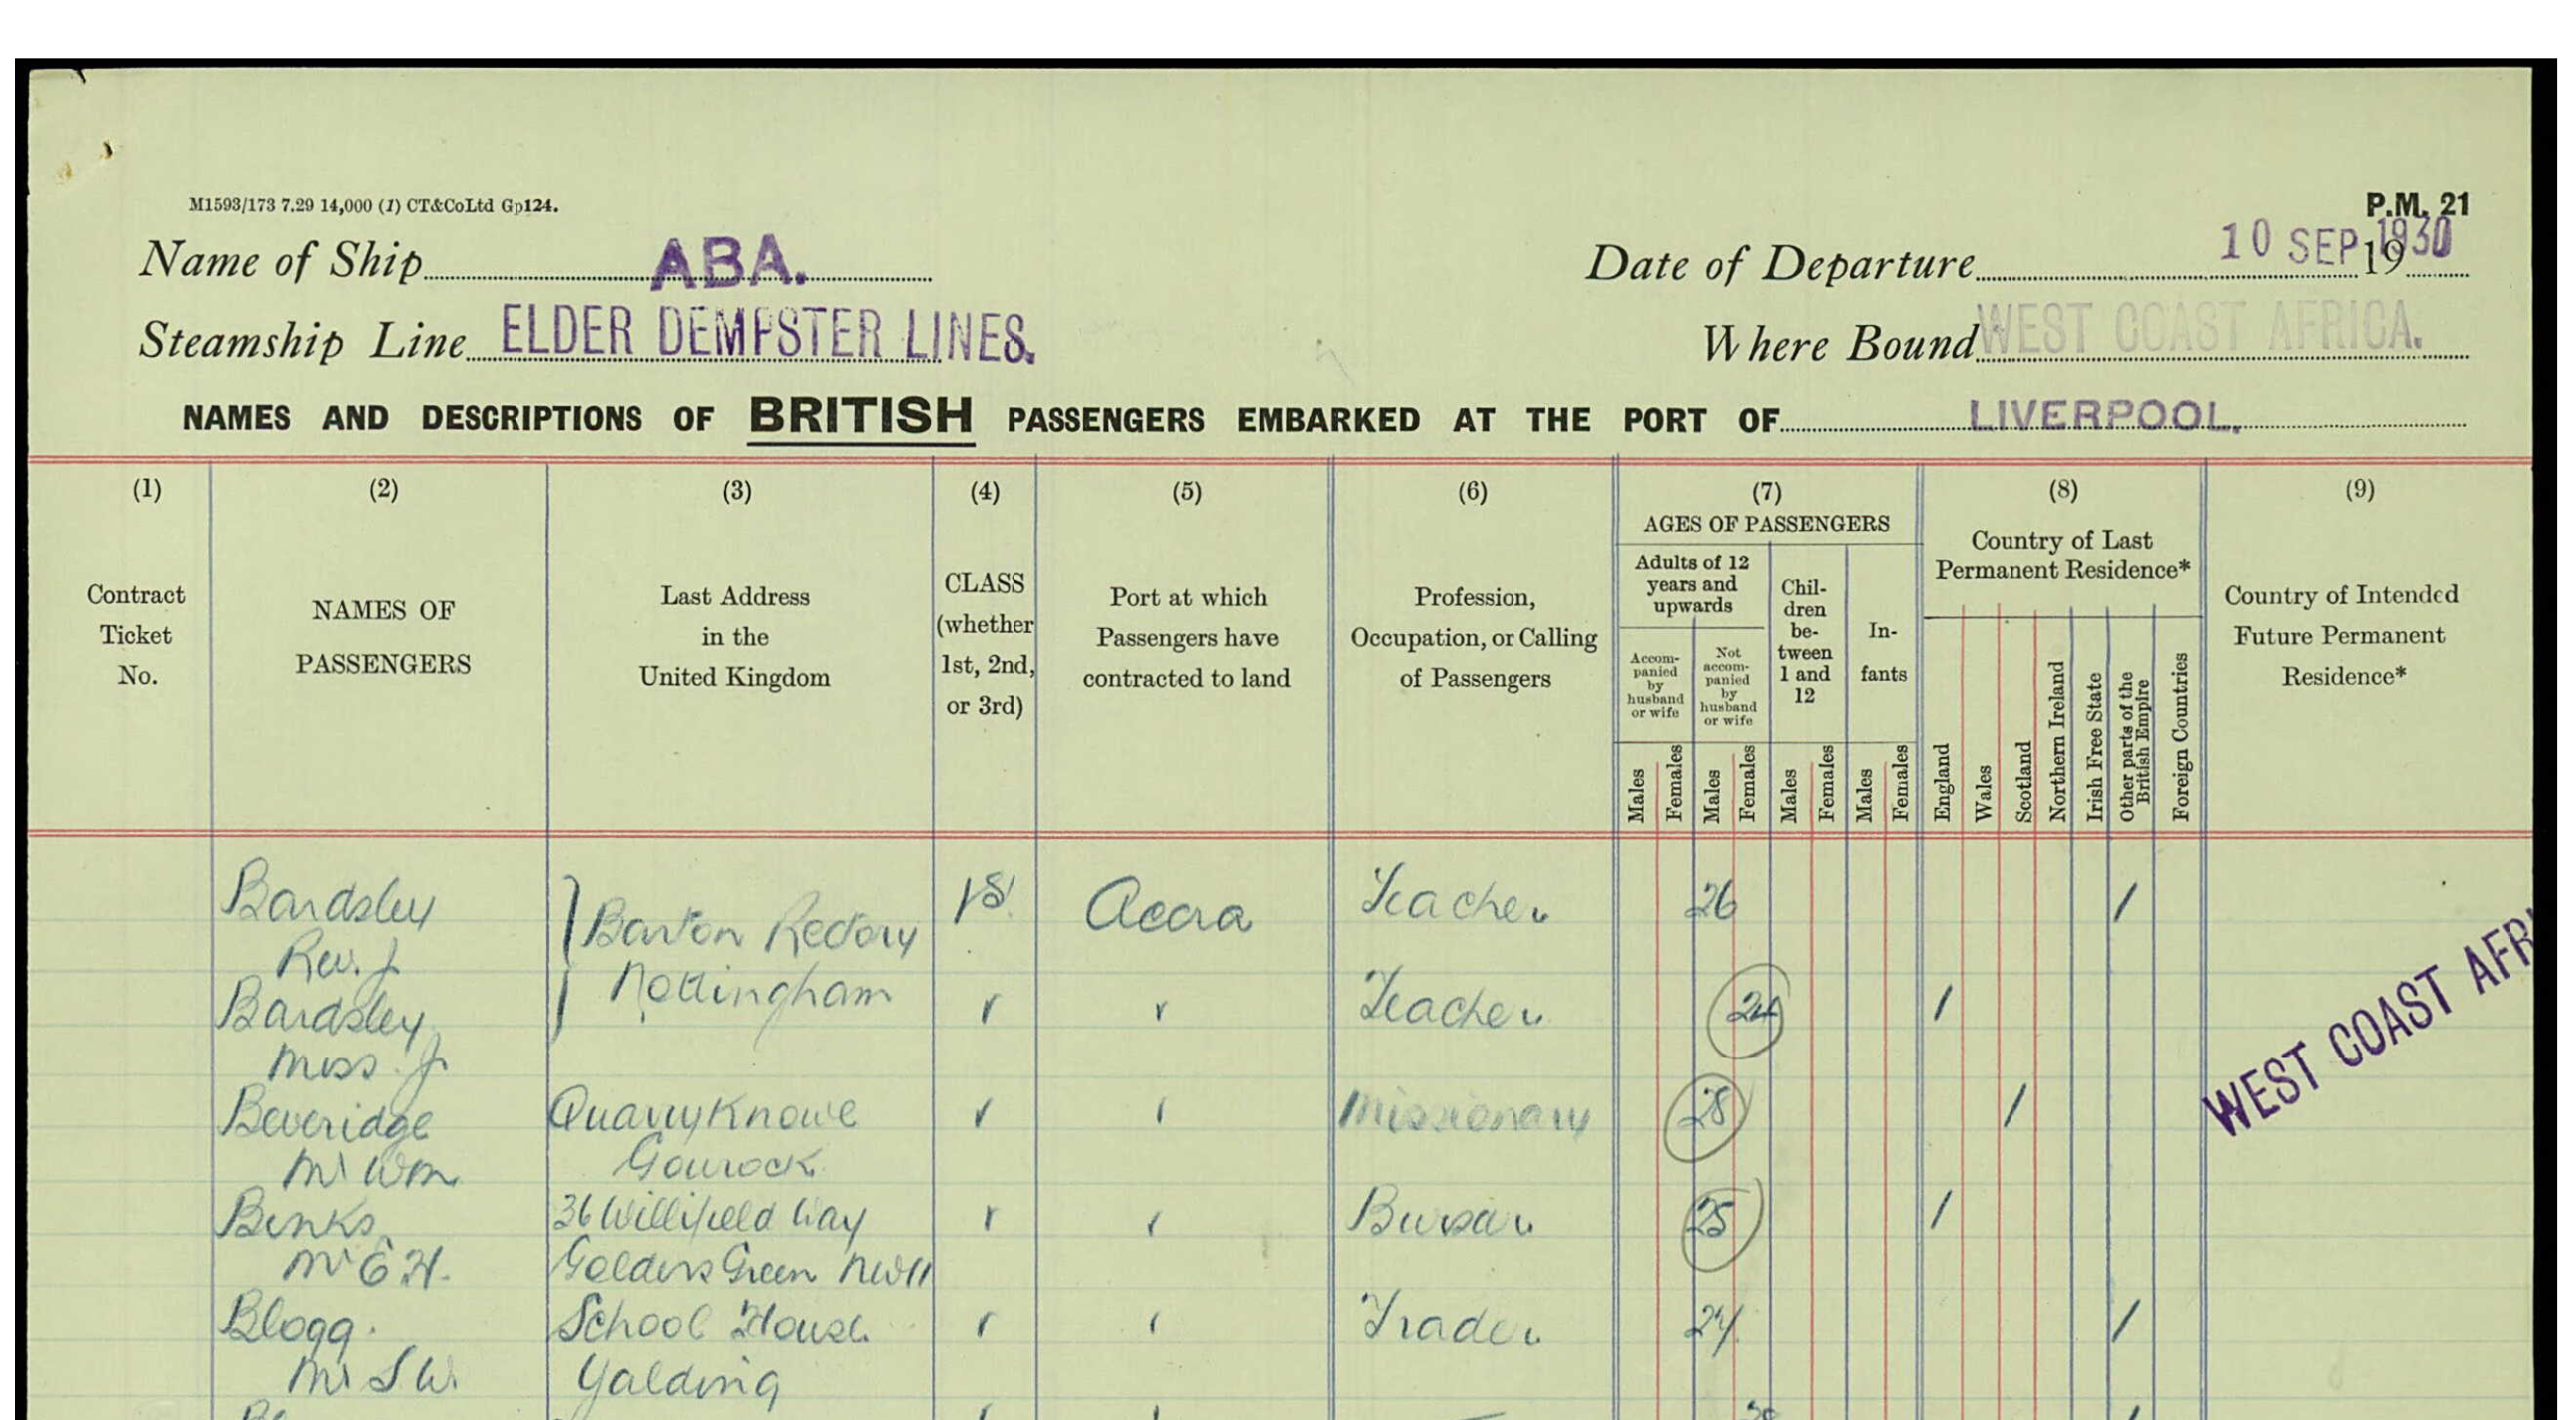 M1593/173 7.29 14,000 (1) CT&CoLtd Gp124.
P.M. 21
Name of Ship ABA.
Date of Departure 10 SEP 1930 19
Steamship Line ELDER DEMPSTER LINES.
Where Bound WEST COAST AFRICA.
NAMES AND DESCRIPTIONS OF BRITISH PASSENGERS EMBARKED AT THE PORT OF LIVERPOOL.
(1) (2) (3) (4) (5) (6) (7) (8) (9)
Contract
Ticket
No.
NAMES OF
PASSENGERS
Last Address
in the
United Kingdom
CLASS
(whether
1st, 2nd,
or 3rd)
Port at which
Passengers have
contracted to land
Profession,
Occupation, or Calling
of Passengers
AGES OF PASSENGERS
Adults of 12
years and
upwards
Accom-
panied
by
husband
or wife
Not
accom-
panied
by
husband
or wife
Chil-
dren
be-
tween
1 and
12
In-
fants
Males Females Males Females Males Females Males Females
Country of Last
Permanent Residence*
England
Wales
Scotland
Northern Ireland
Irish Free State
Other parts of the
British Empire
Foreign Countries
Country of Intended
Future Permanent
Residence*
Bardsley 1st Accra Teacher 26 /
Rev. J
Barton Rectory
Nottingham
Bardsley Teacher 24 /
Miss J
Beveridge Quarryknowe Missionary 28 /
Mr Wm Gourock
Binks 36 Willifield Way Bursar 25 /
Mr E H. Golders Green NW11
Blogg. School House Trader 24 /
Mr S W. Yalding
WEST COAST AFR